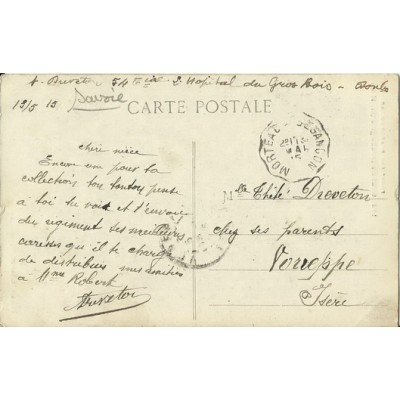 54e 2. Hopital du Gros Bois - Doubs
19/5 15 Savoie
CARTE POSTALE
MORTEAU BESANÇON
MAI
chère nièce
Encore une pour la
collection ton tonton pense
à toi tu vois et t'envoie
du régiment ses meilleures
caresses qu'il te charge
de distribuer mes amitiés
à Robert
Mlle Titite Dreveton
chez ses parents
Voreppe
Isère